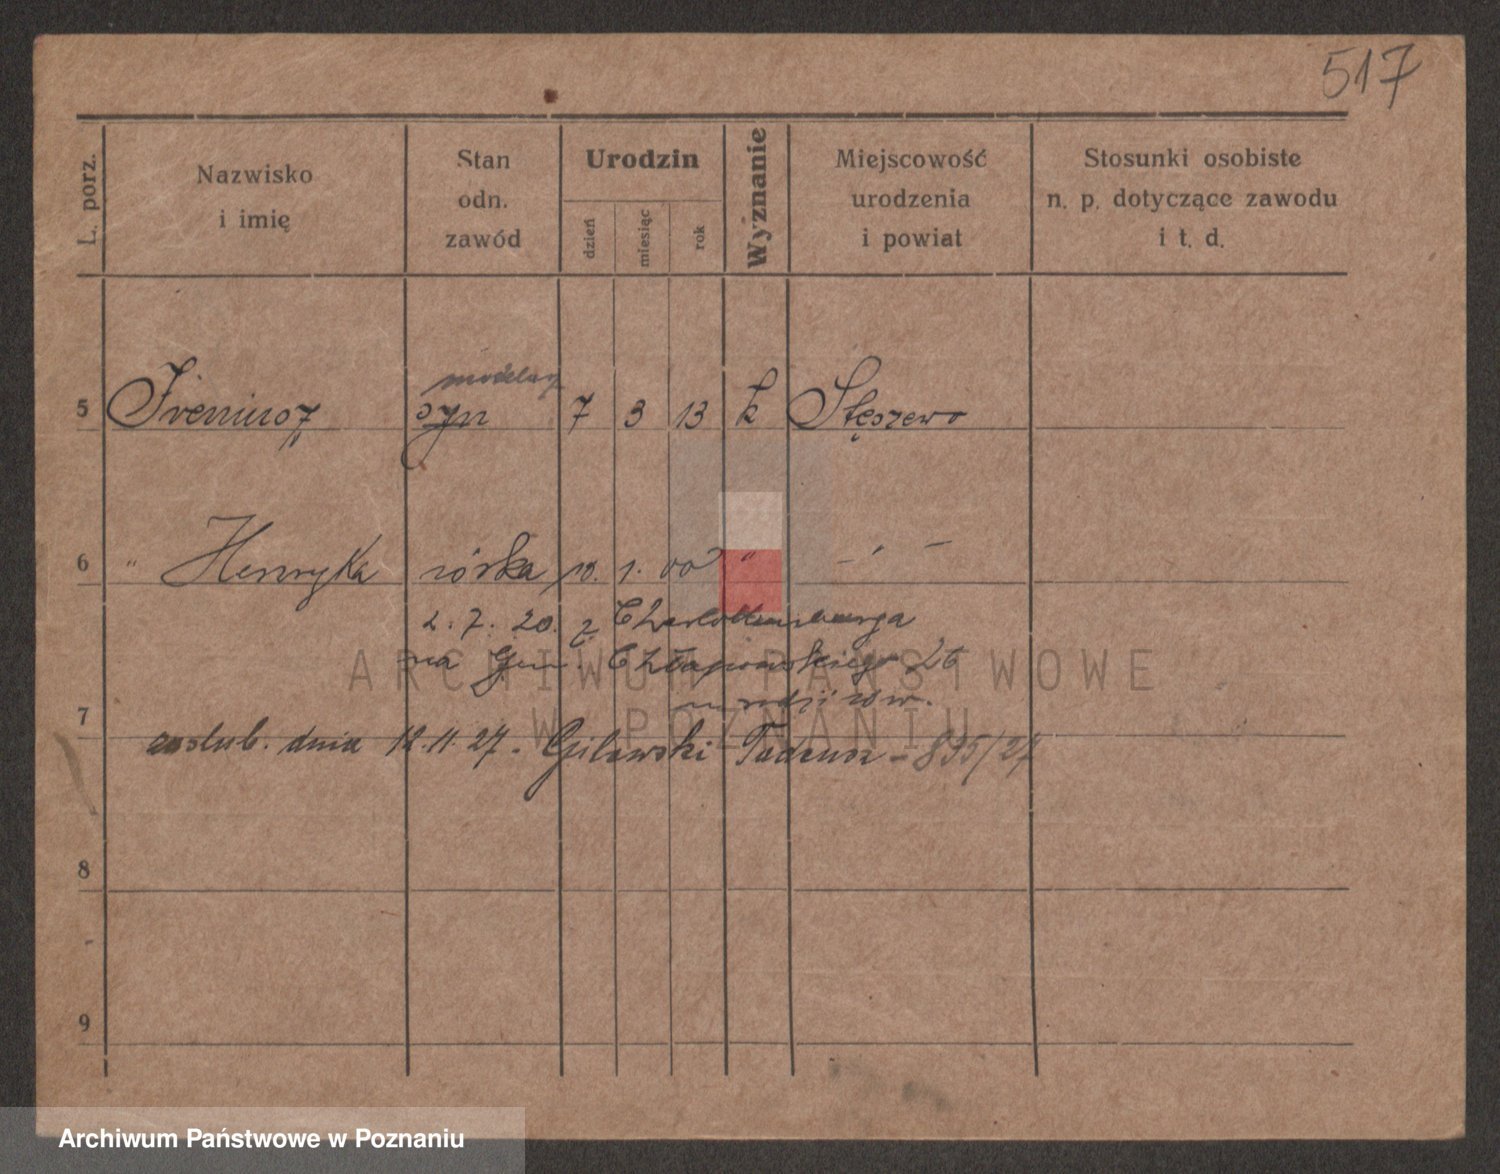 517
L. porz.
Nazwisko
i imię
Stan
odn.
zawód
Urodzin
dzień
miesiąc
rok
Wyznanie
Miejscowość
urodzenia
i powiat
Stosunki osobiste
n. p. dotyczące zawodu
i t. d.
5 syn 7 3 13 k Stęszewo
6 " Henryka córka 10. 1. 00 " - ' -
2. 7. 20. z Charlottenburga
na Gen. Chłapowskiego 26
7
zaslub. dnia 12.11.27. Gilewski Tadeusz - 895/27
8
9
ARCHIWUM PAŃSTWOWE
W POZNANIU
Archiwum Państwowe w Poznaniu